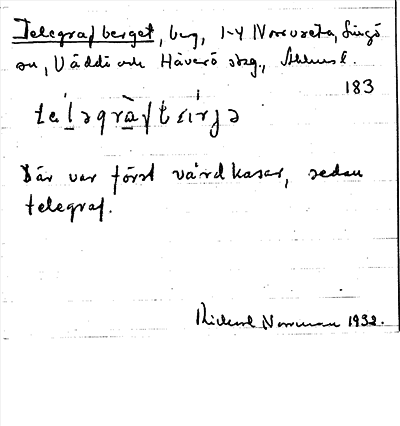 Telegrafberget, berg, 1-4 Norrveta, Singö
sn, Väddö och Häverö skg., Sthms l.
183
Där var först vårdkasar, sedan
telegraf.
Rickard Norrman 1932.